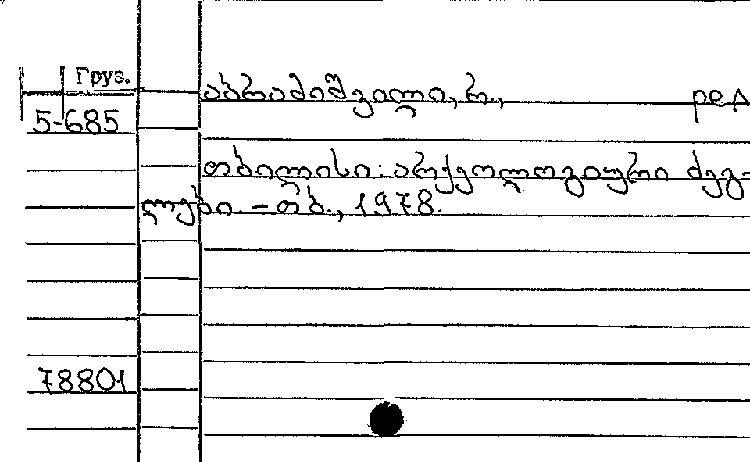 Груз.
აბრამიშვილი, რ., ред
5-685
თბილისი: არქეოლოგიური ძეგ-
ლები. – თბ., 1978.
78801